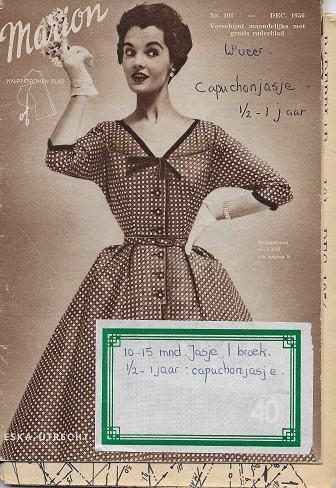 Marion
Nr. 101 — DEC. 1956
Verschijnt maandelijks met
gratis raderblad
KNIPPATRONEN BLAD
Capuchonjasje
1/2 - 1 jaar
Knippatroon
zie pagina 8
10-15 mnd. Jasje, 1 broek.
1/2 - 1 jaar : capuchonjasje.
40
ESKA-UTRECHT